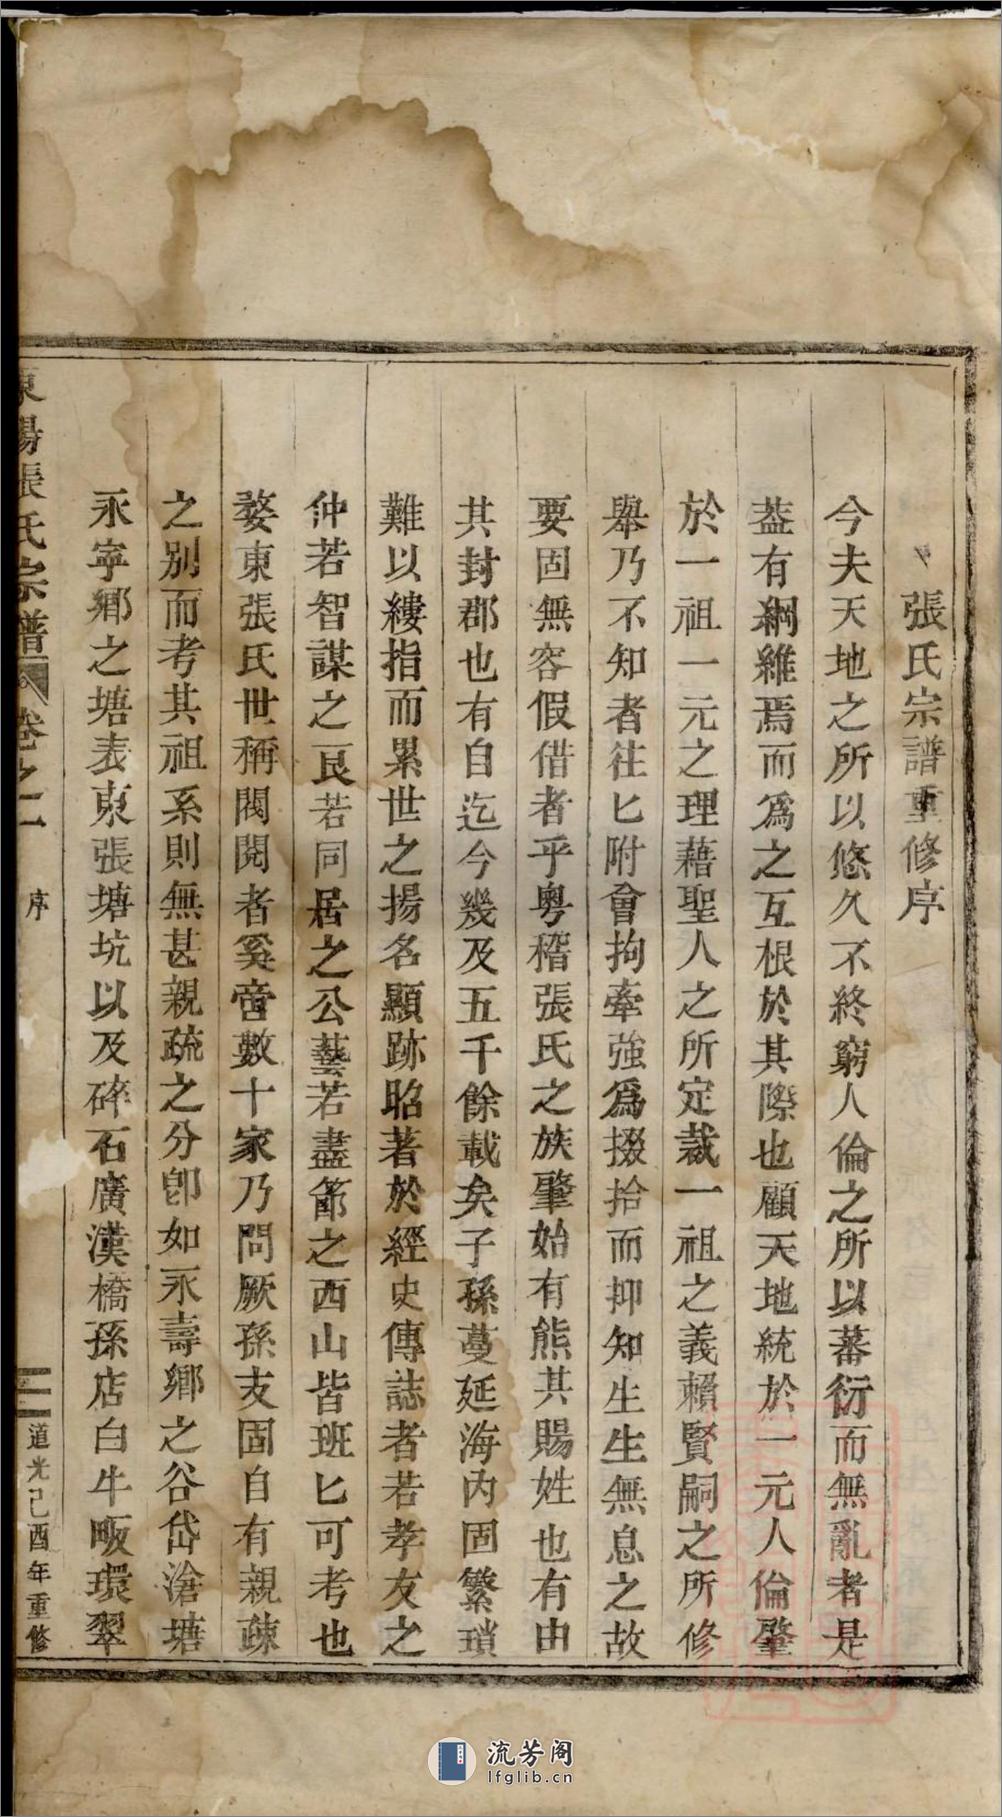 張氏宗譜重修序
今夫天地之所以悠久不終窮人倫之所以蕃衍而無亂者是
葢有綱維焉而爲之互根於其際也顧天地統於一元人倫肇
於一祖一元之理藉聖人之所定裁一祖之義賴賢嗣之所修
舉乃不知者往匕附會拘牽強爲掇拾而抑知生生無息之故
要固無容假借者乎粵稽張氏之族肇始有熊其賜姓也有由
其封郡也有自迄今幾及五千餘載矣子孫蔓延海內固繁瑣
難以縷指而累世之揚名顯跡昭著於經史傳誌者若孝友之
仲若智謀之良若同居之公藝若盡節之西山皆班匕可考也
婺東張氏世稱閥閱者奚啻數十家乃問厥孫支固自有親疎
之别而考其祖系則無甚親疏之分卽如永壽鄉之谷岱滄塘
永寧鄉之塘表東張塘坑以及碎石廣漢橋孫店白牛畈環翠
東陽張氏宗譜 卷之一 序 道光己酉年重修
流芳阁
lfglib.cn